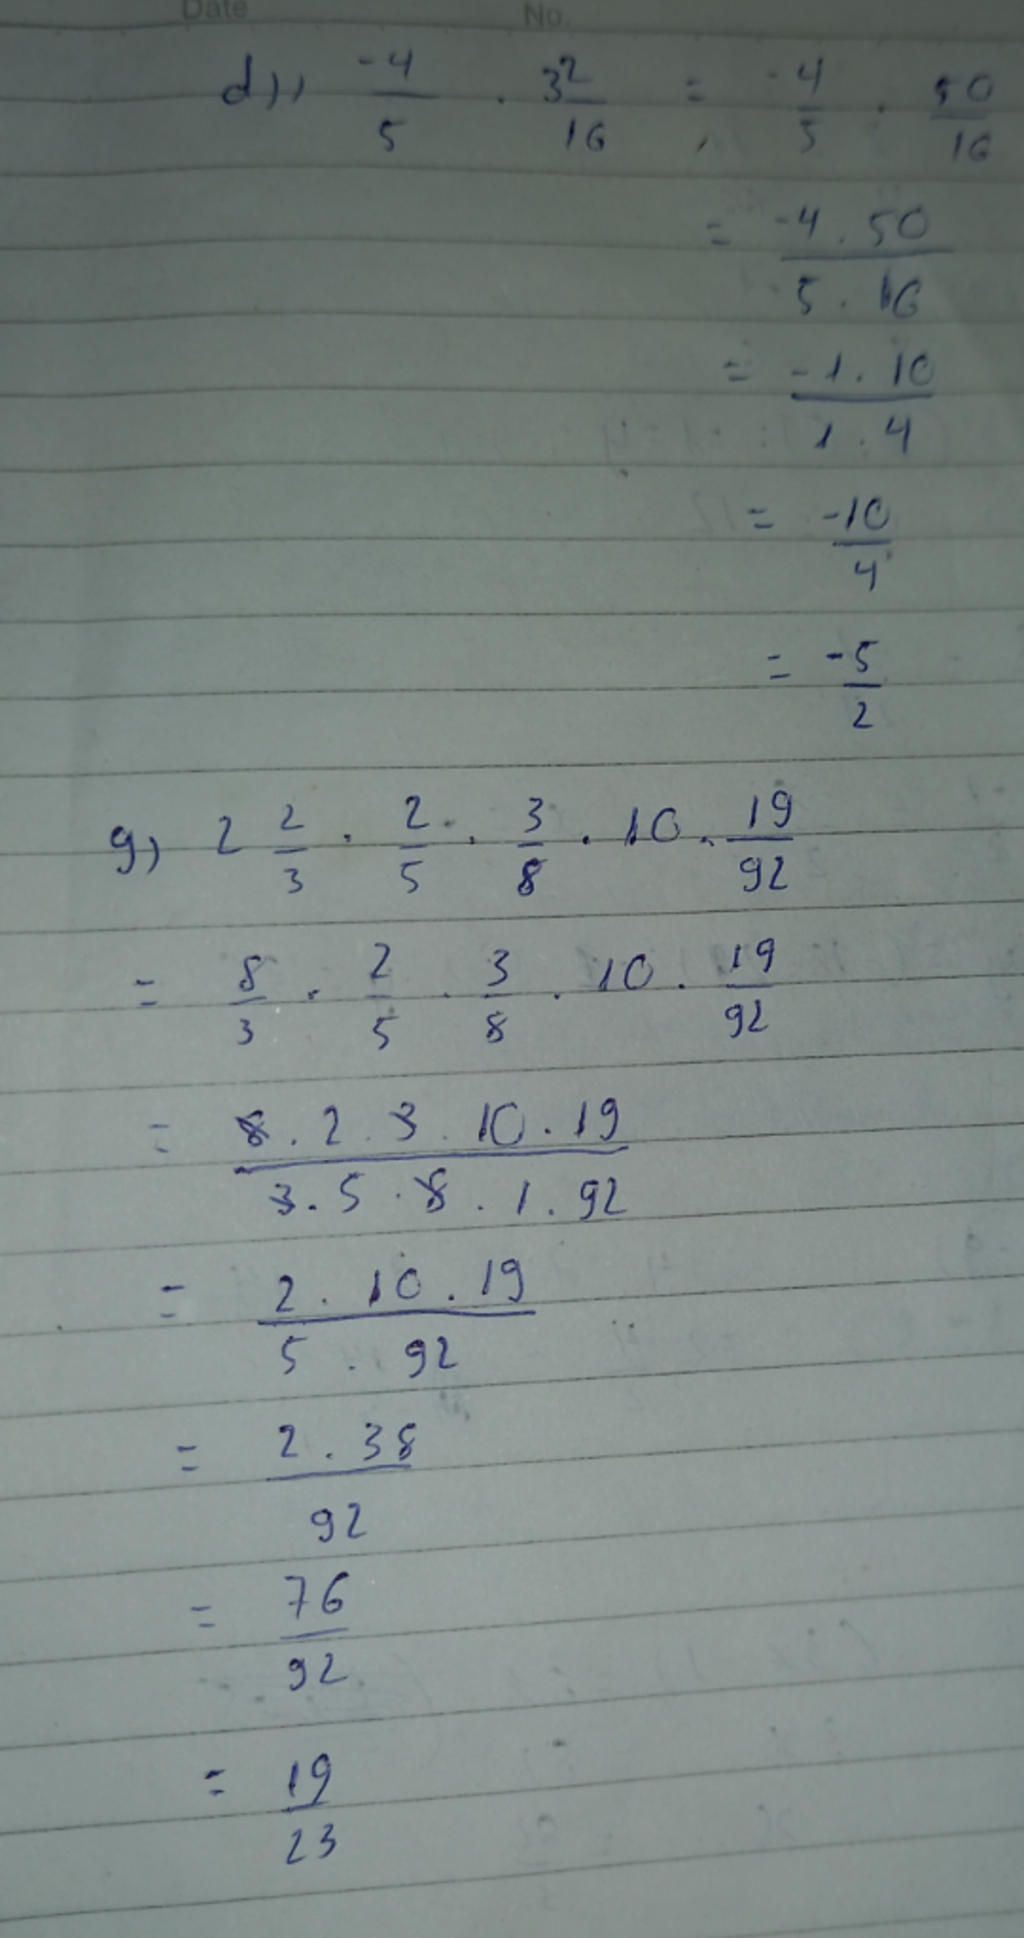 Date No.
d), -4/5 . 3 2/16 = -4/5 . 50/16
= -4 . 50 / 5 . 16
= -1 . 10 / 1 . 4
= -10/4
= -5/2
g) 2 2/3 . 2/5 . 3/8 . 10 . 19/92
= 8/3 . 2/5 . 3/8 . 10 . 19/92
= 8 . 2 . 3 . 10 . 19 / 3 . 5 . 8 . 1 . 92
= 2 . 10 . 19 / 5 . 92
= 2 . 38 / 92
= 76/92
= 19/23